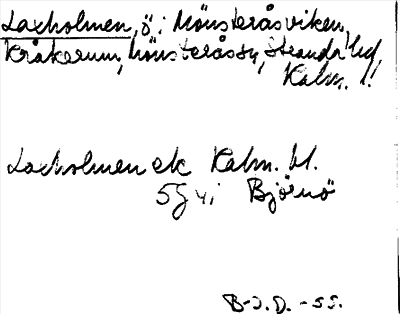 Laxholmen, ö i Mönsteråsviken,
Kråkerum, Mönsterås sn, Stranda hd,
Kalm. l.
Laxholmen ek Kalm. bl.
5G 4i Björnö
B-J.D. -55.